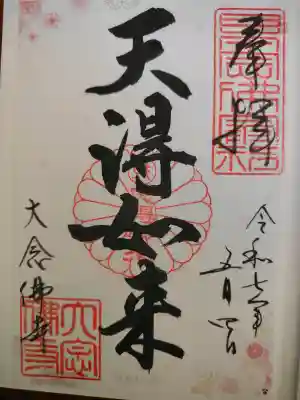 奉拝
令和七年
五月四日
天得如来
大念佛寺
大念
佛寺